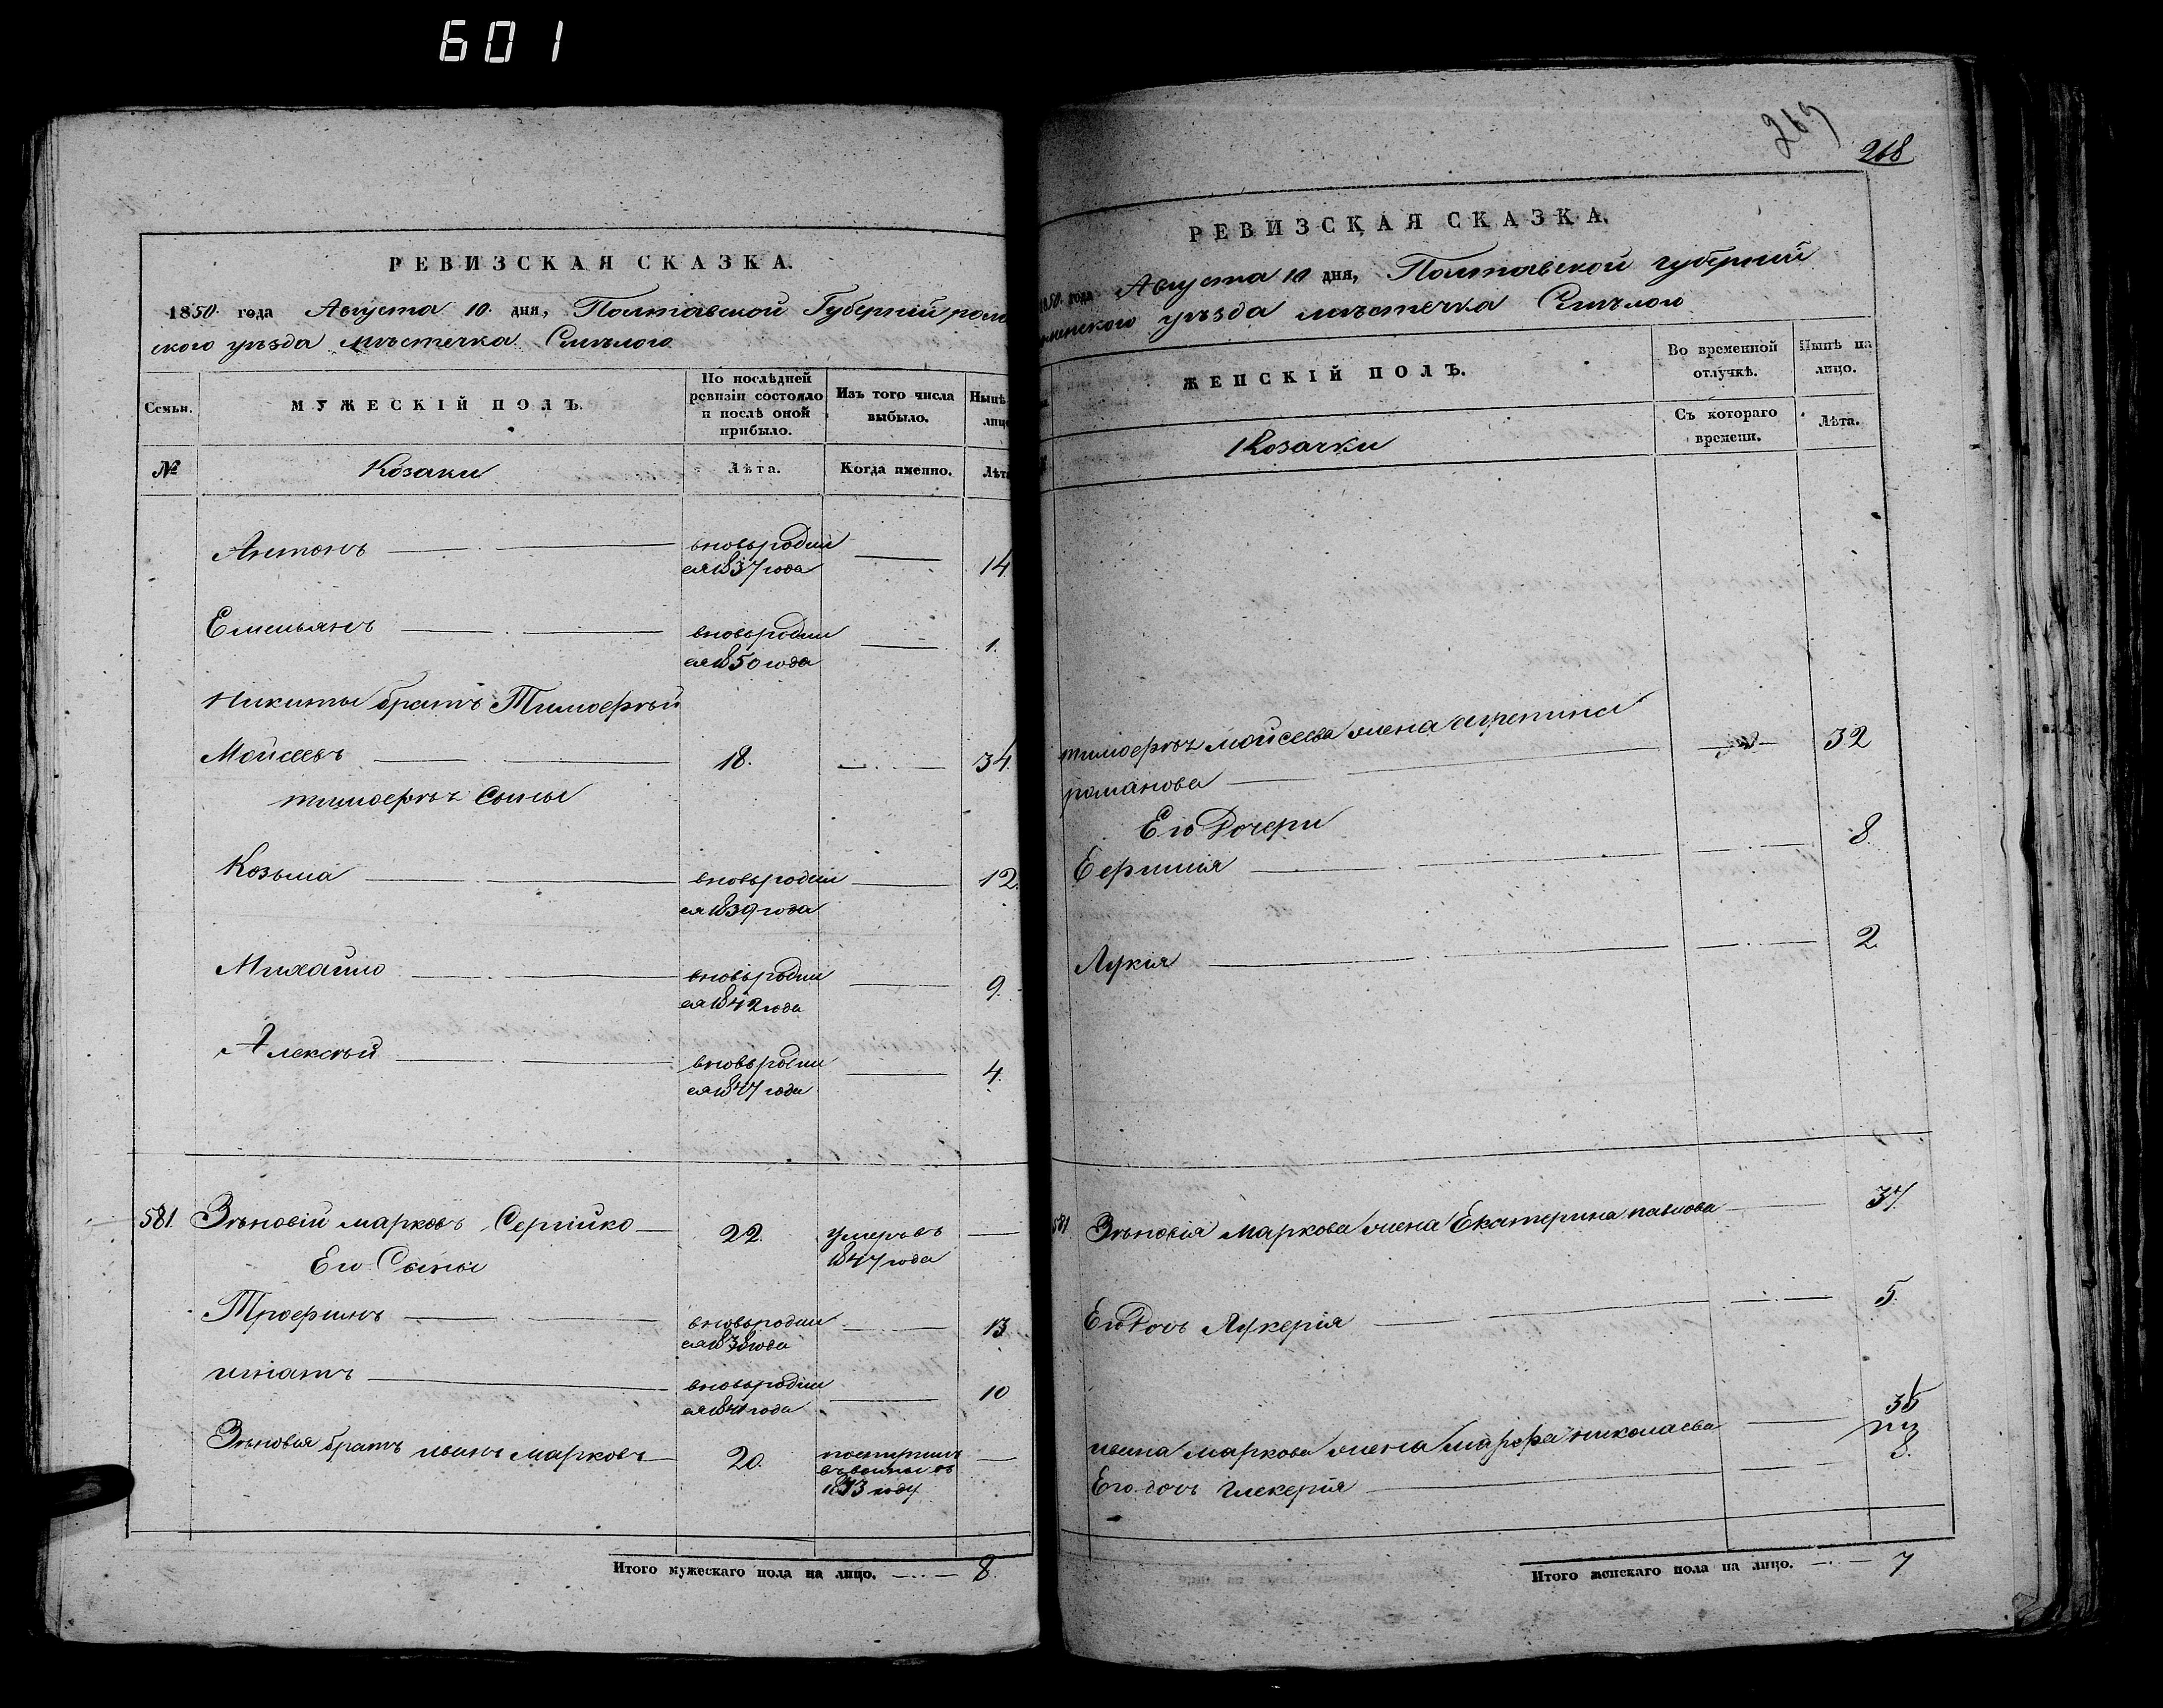 601
РЕВИЗСКАЯ СКАЗКА.
1850. года Августа 10. дня, Полтавской Губерний роме
ского уѣзда мѣстечка Смѣлого
Семьи.
МУЖЕСКІЙ ПОЛЪ.
По послѣдней ревизіи состояло и послѣ оной прибыло.
Изъ того числа выбыло.
Нынѣ лицо
№
Козаки
Лѣта.
Когда именно.
Лѣта
Антонъ
вновьродил
ся1837 года
14
Емельянъ
вновьродил
ся1850 года
1.
Никиты братъ Тимоѳѣй
Мойсеевъ
18.
34.
тимоѳѣя Сыны
Козьма
вновьродил
ся1839 года
12.
Михайло
вновьродил
ся1842 года
9.
Алексѣй
вновьродил
ся1847 года
4.
581. Зѣновій марковъ Сергійко
22.
умеръ въ
1847 года
Его Сыны
Трофимъ
вновьродил
ся1838 года
13
игнатъ
вновьродил
ся1841 года
10
Зѣновія братъ иванъ марковъ
20.
поступилъ
1843 году
Итого мужескаго пола на лицо. 8.
269
268
РЕВИЗСКАЯ СКАЗКА.
1850. года Августа 10 дня, Полтавской губерний
менского уѣзда мѣстечка Смѣлого
ЖЕНСКІЙ ПОЛЪ.
Во временной отлучкѣ.
Нынѣ на лицо.
Козачки
Съ котораго времени.
Лѣта.
тимоѳѣя мойсеева жена агрепина
романова
32
Его Дочери
Ефимія
8.
Лукія
2.
581 Зѣновія Маркова жена Екатерина павлова
37.
Его Дочь Лукерія
5.
ивана Маркова жена марфа николаева
35
Его дочь Глекерія
8.
Итого женскаго пола на лицо. 7